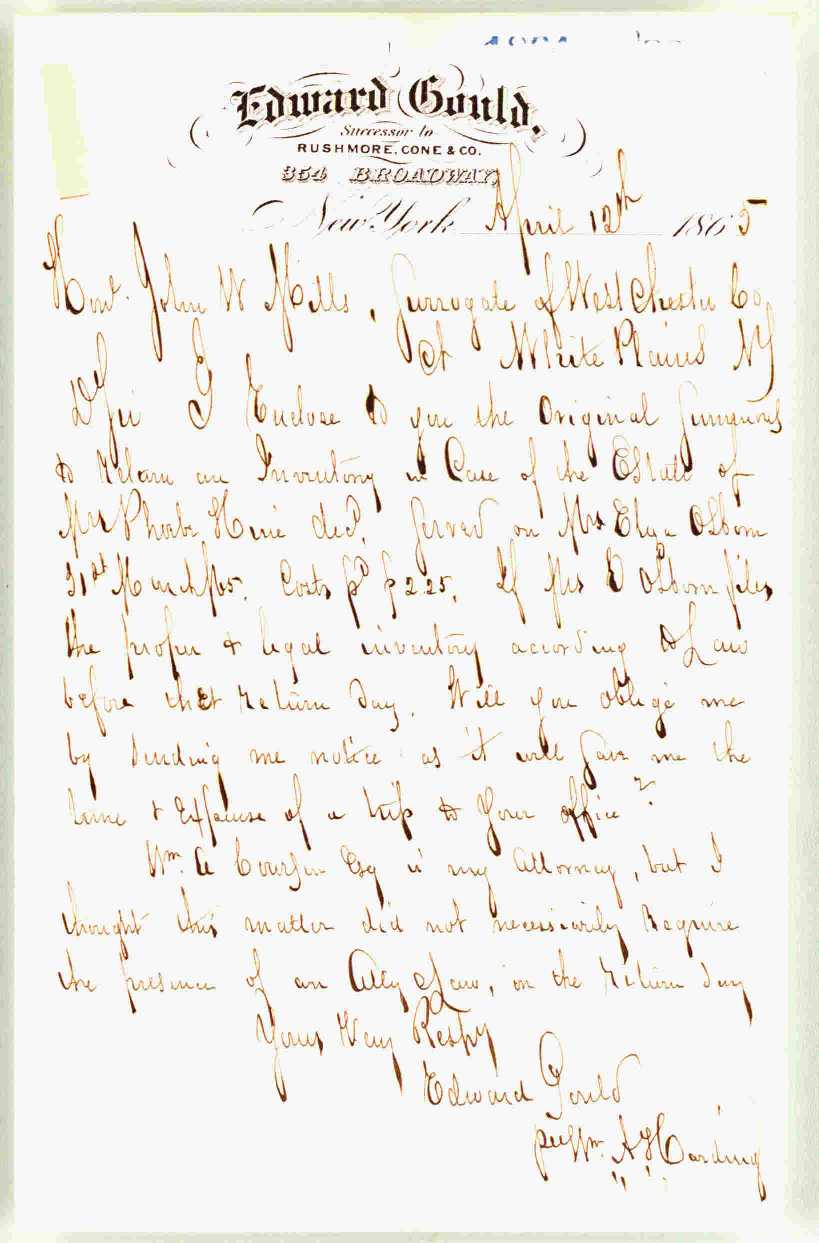 Edward Gould,
Successor to
RUSHMORE, CONE & CO.
354 BROADWAY,
New York April 12th 1865
Hon. John W Mills, Surrogate of West Chester Co,
At White Plains NY
D Sir I Enclose to you the Original Summons
to return an Inventory in Case of the Estate of
Mrs Phoebe decd, Served on Mrs Eliza Osborn
31st March/65. Costs pd $2.25. If Mrs E Osborn files
the proper & legal inventory according to Law
before that return day. Will you oblige me
by sending me notice as it will save me the
time & Expense of a trip to your office?
Wm. A Esq is my Attorney, but I
thought this matter did not necessarily Require
the presence of an Atty at Law, on the return day
Yours Very Respy
Edward Gould
per Wm. A Harding